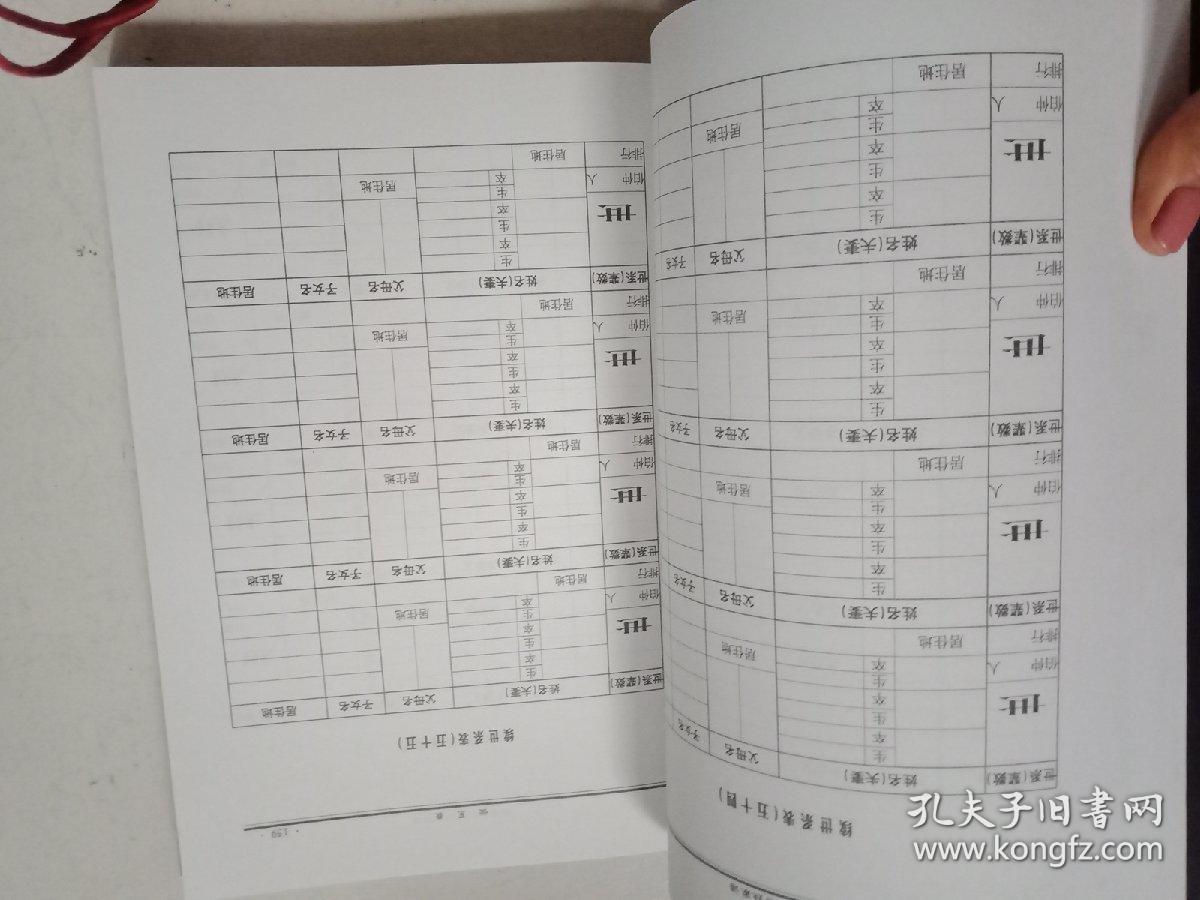 续世系表(五十四)
世系(辈数) 姓名(夫妻) 父母名
生
卒
世 生 子女名
卒
生 居住地
伯仲 人 卒
排行 居住地
世系(辈数) 姓名(夫妻) 父母名 子女名
生
卒
世 生
卒
生 居住地
伯仲 人 卒
排行 居住地
世系(辈数) 姓名(夫妻) 父母名 子女名
生
卒
世 生
卒
生 居住地
伯仲 人 卒
排行 居住地
世系(辈数) 姓名(夫妻) 父母名 子
生
卒
世 生
卒
生 居住地
伯仲 人 卒
排行 居住地
续世系表(五十五)
世系(辈数) 姓名(夫妻) 父母名 子女名 居住地
生
卒
世 生
卒
生 居住地
伯仲 人 卒
排行 居住地
世系(辈数) 姓名(夫妻) 父母名 子女名 居住地
生
卒
世 生
卒
生 居住地
伯仲 人 卒
排行 居住地
世系(辈数) 姓名(夫妻) 父母名 子女名 居住地
生
卒
世 生
卒
生 居住地
伯仲 人 卒
排行 居住地
世系(辈数) 姓名(夫妻) 父母名 子女名 居住地
生
卒
世 生
卒
生 居住地
伯仲 人 卒
排行 居住地
孔夫子旧书网
www.kongfz.com